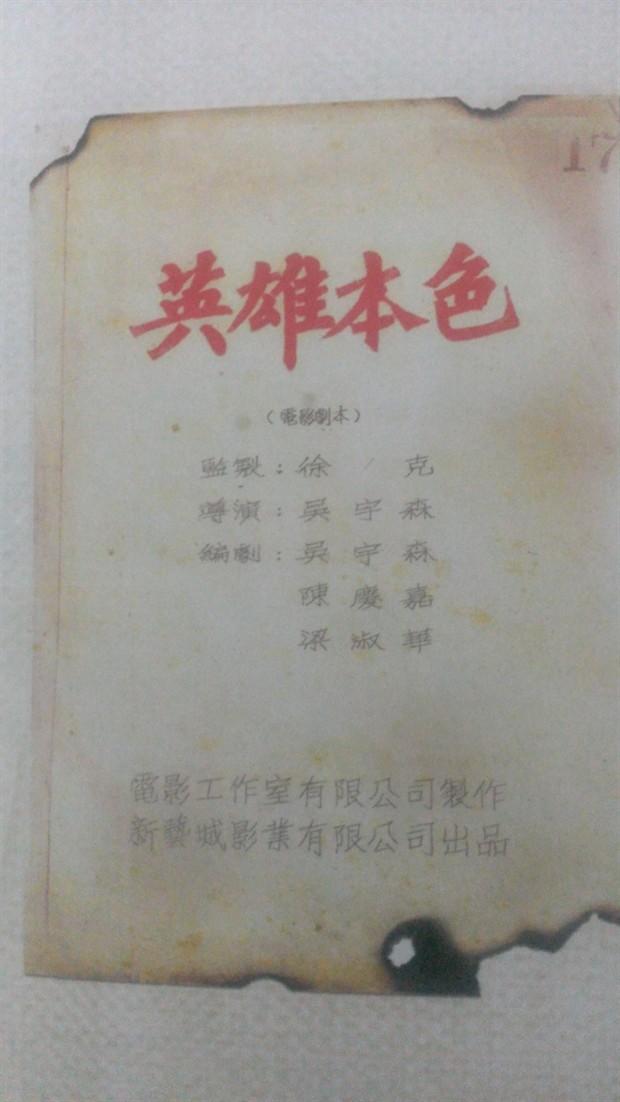 17
英雄本色
（電影劇本）
監製：徐 克
導演：吳宇森
編劇：吳宇森
陳慶嘉
梁淑華
電影工作室有限公司製作
新藝城影業有限公司出品